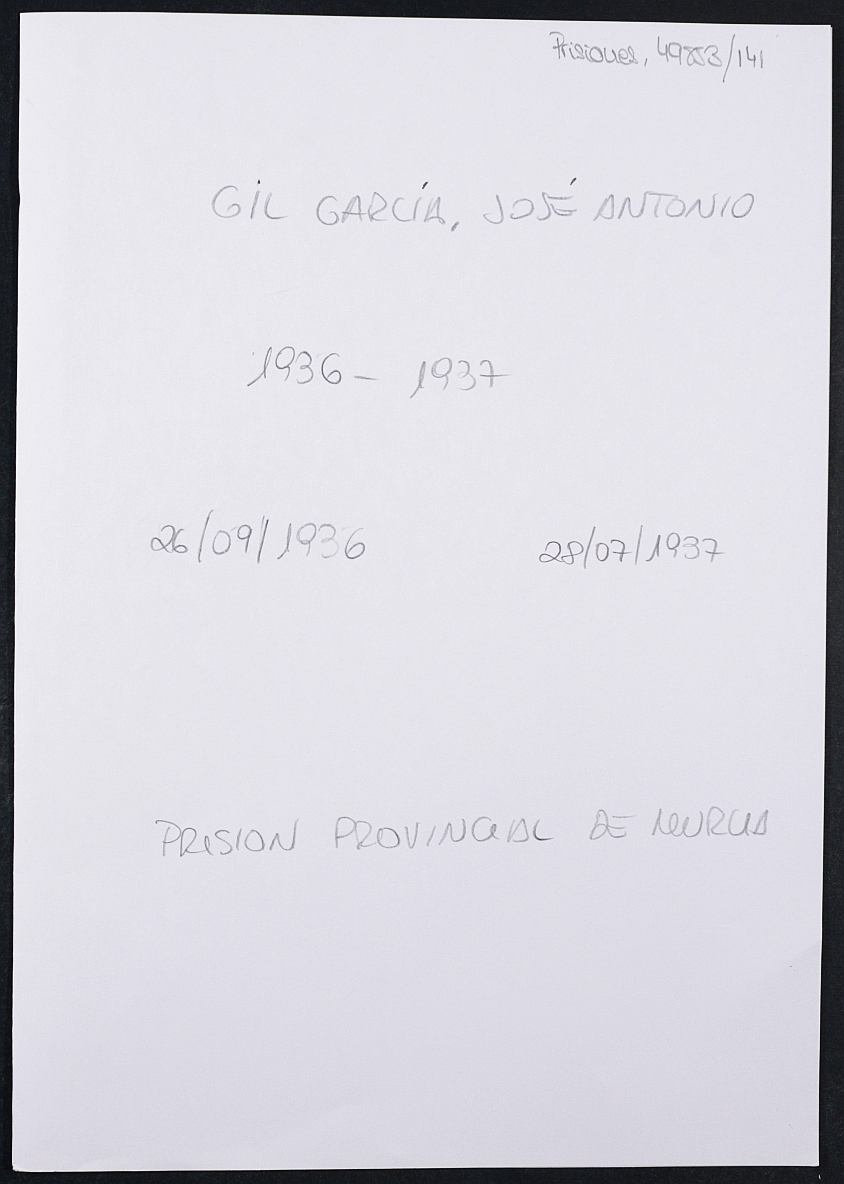 Prisiones, 49853/141
GIL GARCÍA, JOSÉ ANTONIO
1936 - 1937
26/09/1936 28/07/1937
PRISION PROVINCIAL DE MURCIA